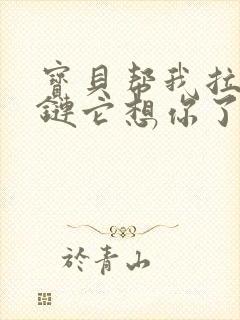 寶貝帮我拉
鏈它想你了
於青山